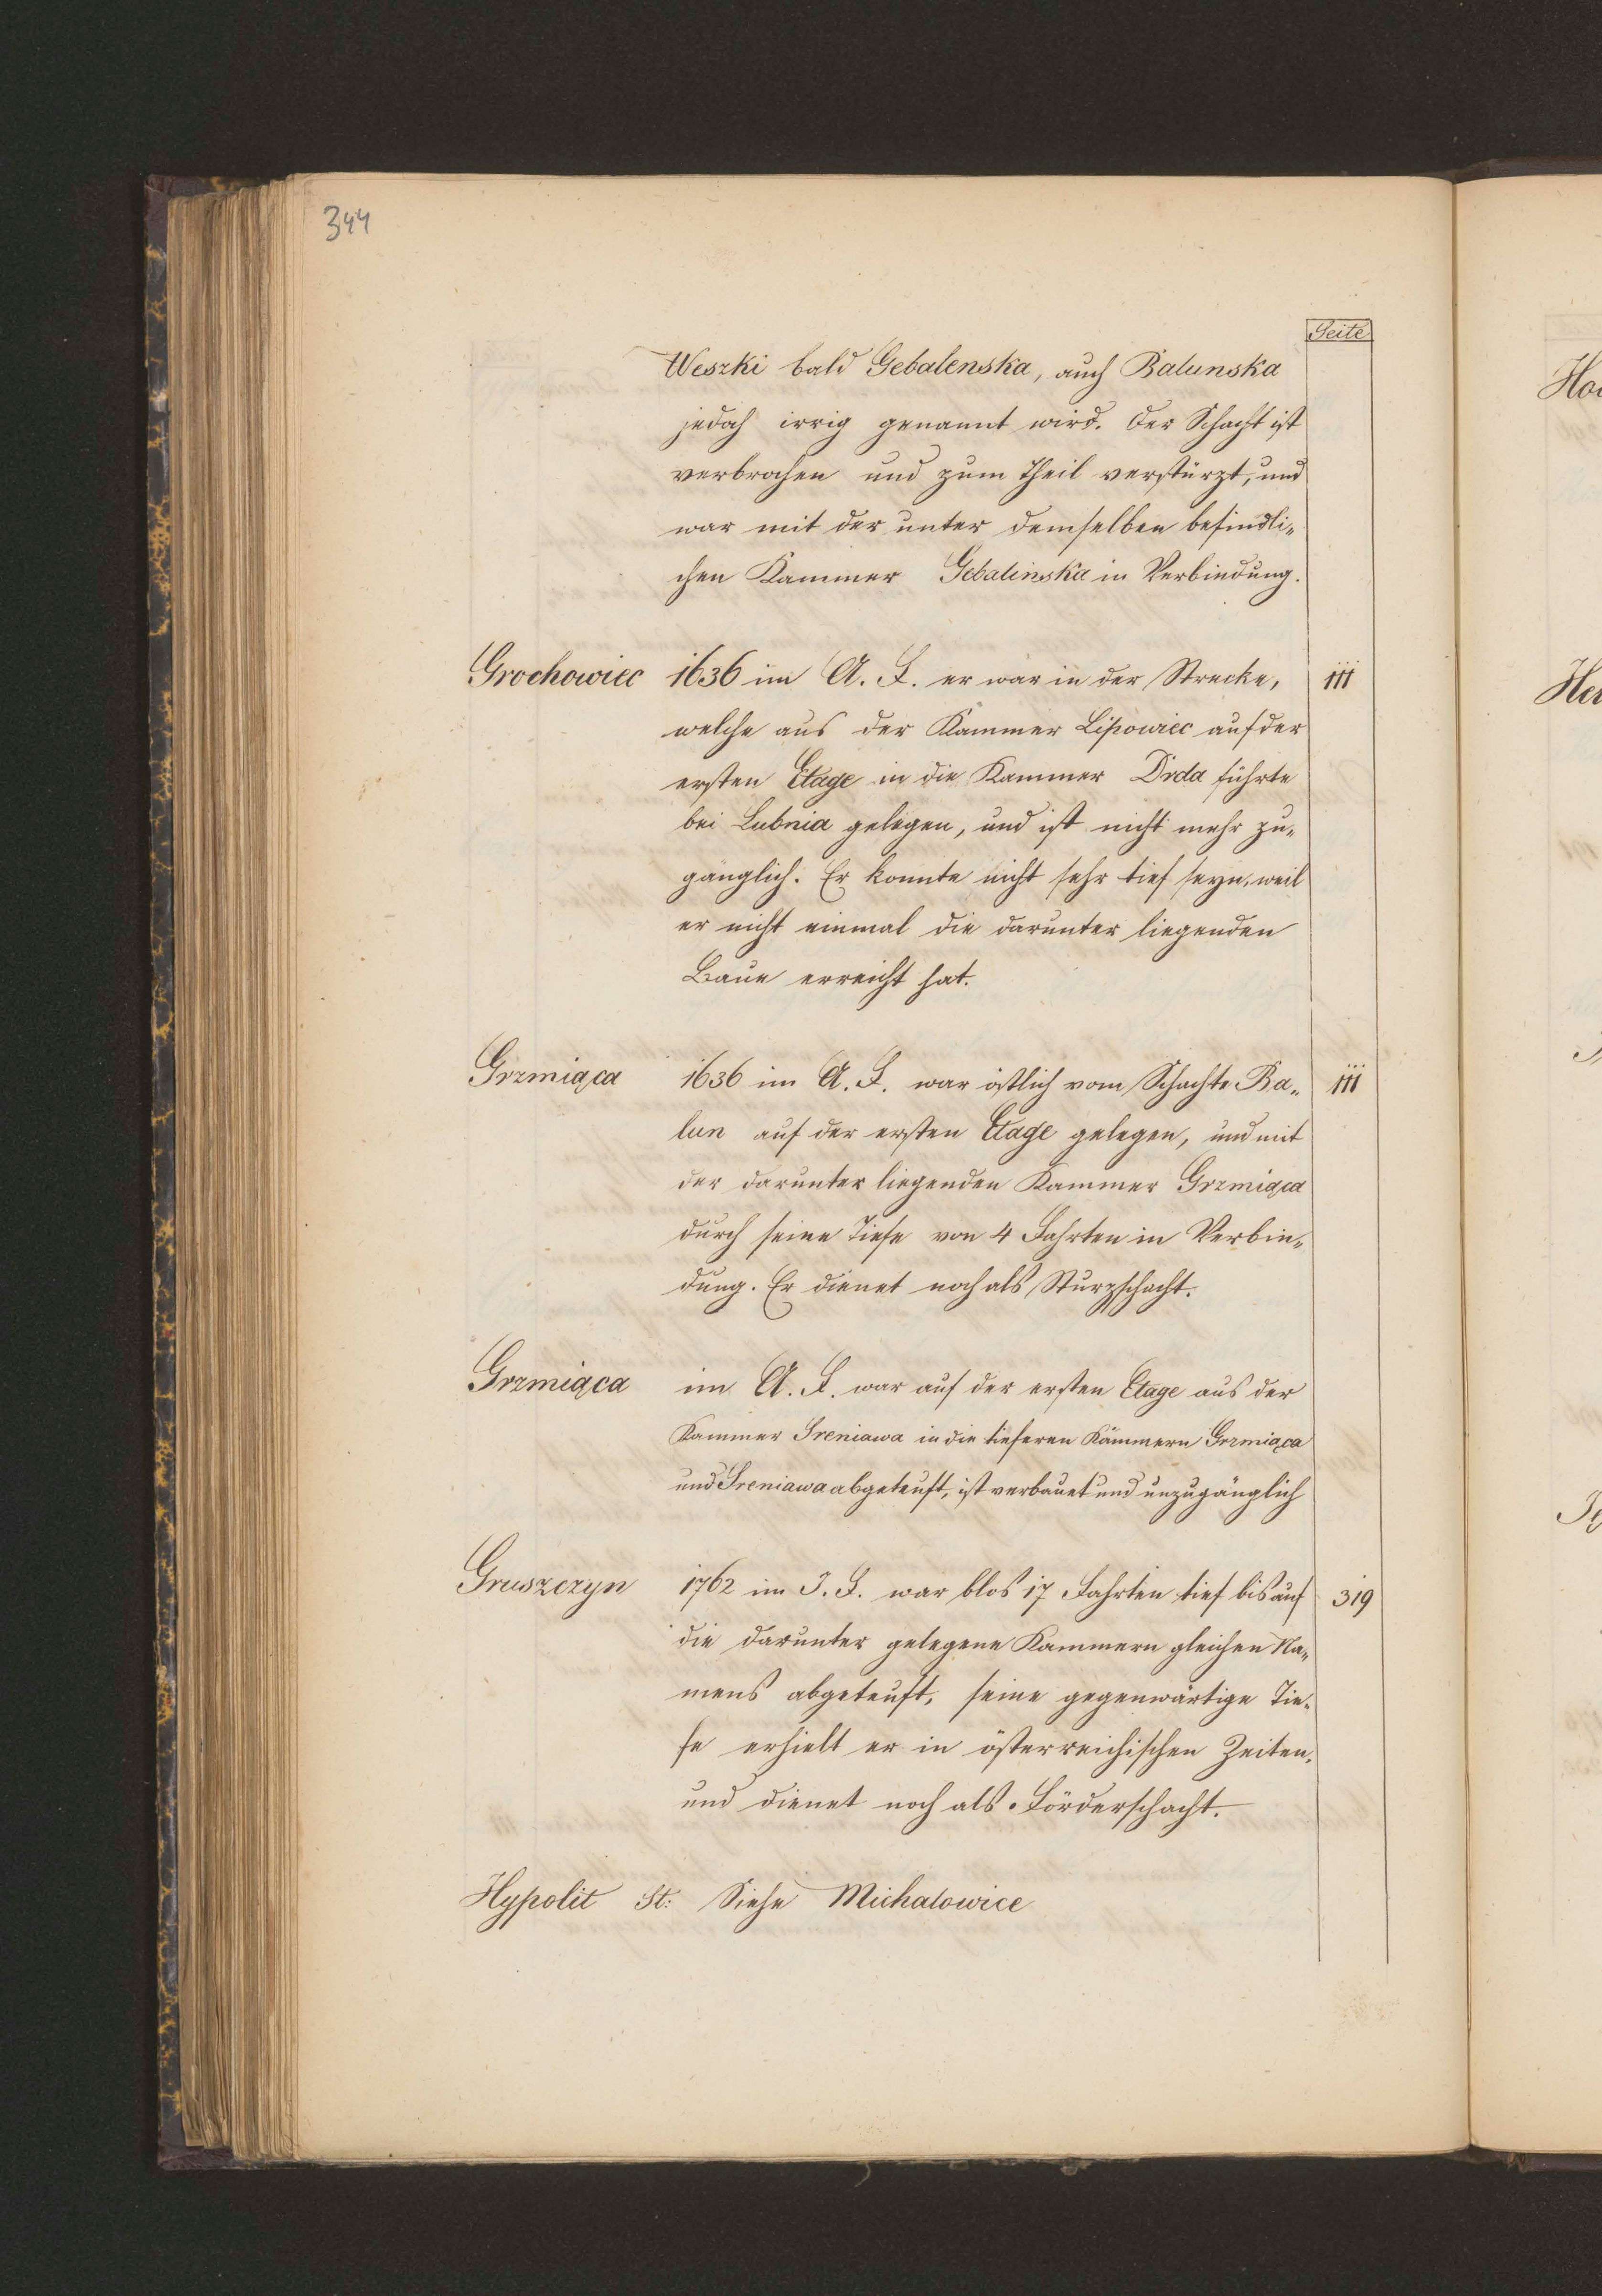 344
Seite
Weszki bald Gebalenska, auch Balunska
jedoch irrig genannt wird. Der Schacht ist
verbrochen und zum Theil verstürzt, und
war mit der unter demselben befindli„
chen Kammer Gebalinska in Verbindung.
Grochowiec 1636 im A. F. er war in der Strecke, 111
welche aus der Kammer Lipowiec auf der
ersten Etage in die Kammer Drda führte
bei Lubnia gelegen, und ist nicht mehr zu„
gänglich. Er konnte nicht sehr tief seyn, weil
er nicht einmal die darunter liegenden
Baue erreicht hat.
Grzmiąca 1636 im A. F. war östlich vom Schachte Ba„ 111
lun auf der ersten Etage gelegen, und mit
der darunter liegenden Kammer Grzmiąca
durch seine Tiefe von 4 Fahrten in Verbin„
dung. Er dienet noch als Sturzschacht.
Grzmiąca im A. F. war auf der ersten Etage aus der
Kammer Sreniawa in die tieferen Kammern Grzmiąca
und Sreniawa abgeteuft, ist verbauet und unzugänglich
Gruszczyn 1762 im J. F. war blos 17 Fahrten tief bis auf 319
die darunter gelegene Kammern gleichen Na„
mens abgeteuft, seine gegenwärtige Tie„
fe erhielt er in österreichischen Zeiten,
und dienet noch als Förderschacht.
Hypolit St: Siehe Michalowice
Ho
Her